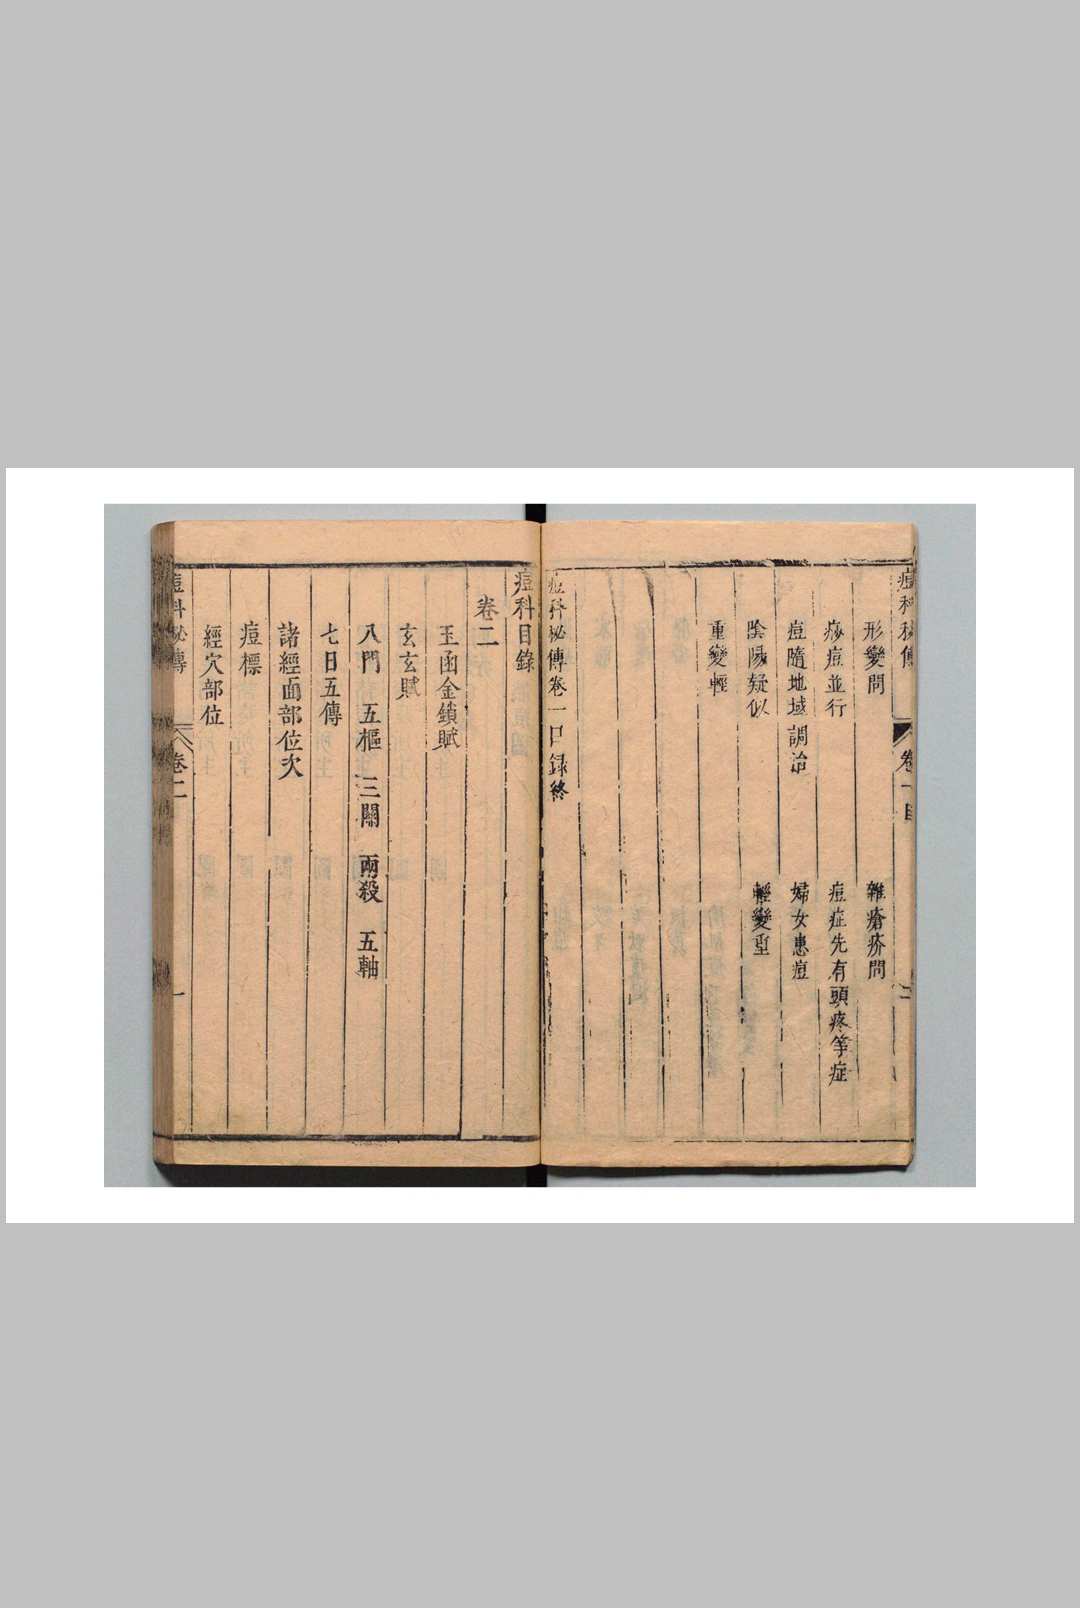 痘科秘傳 卷一目
形變問 雜瘡疥問
痧痘並行 痘症先有頭疼等症
痘隨地域調治 婦女患痘
陰陽疑似 輕變重
重變輕
痘科秘傳卷一目録終
痘科目錄
卷二
玉函金鎖賦
玄玄賦
八門 五樞 三關 兩殺 五軸
七日五傳
諸經面部位次
痘標
經穴部位
痘科秘傳 卷二 一